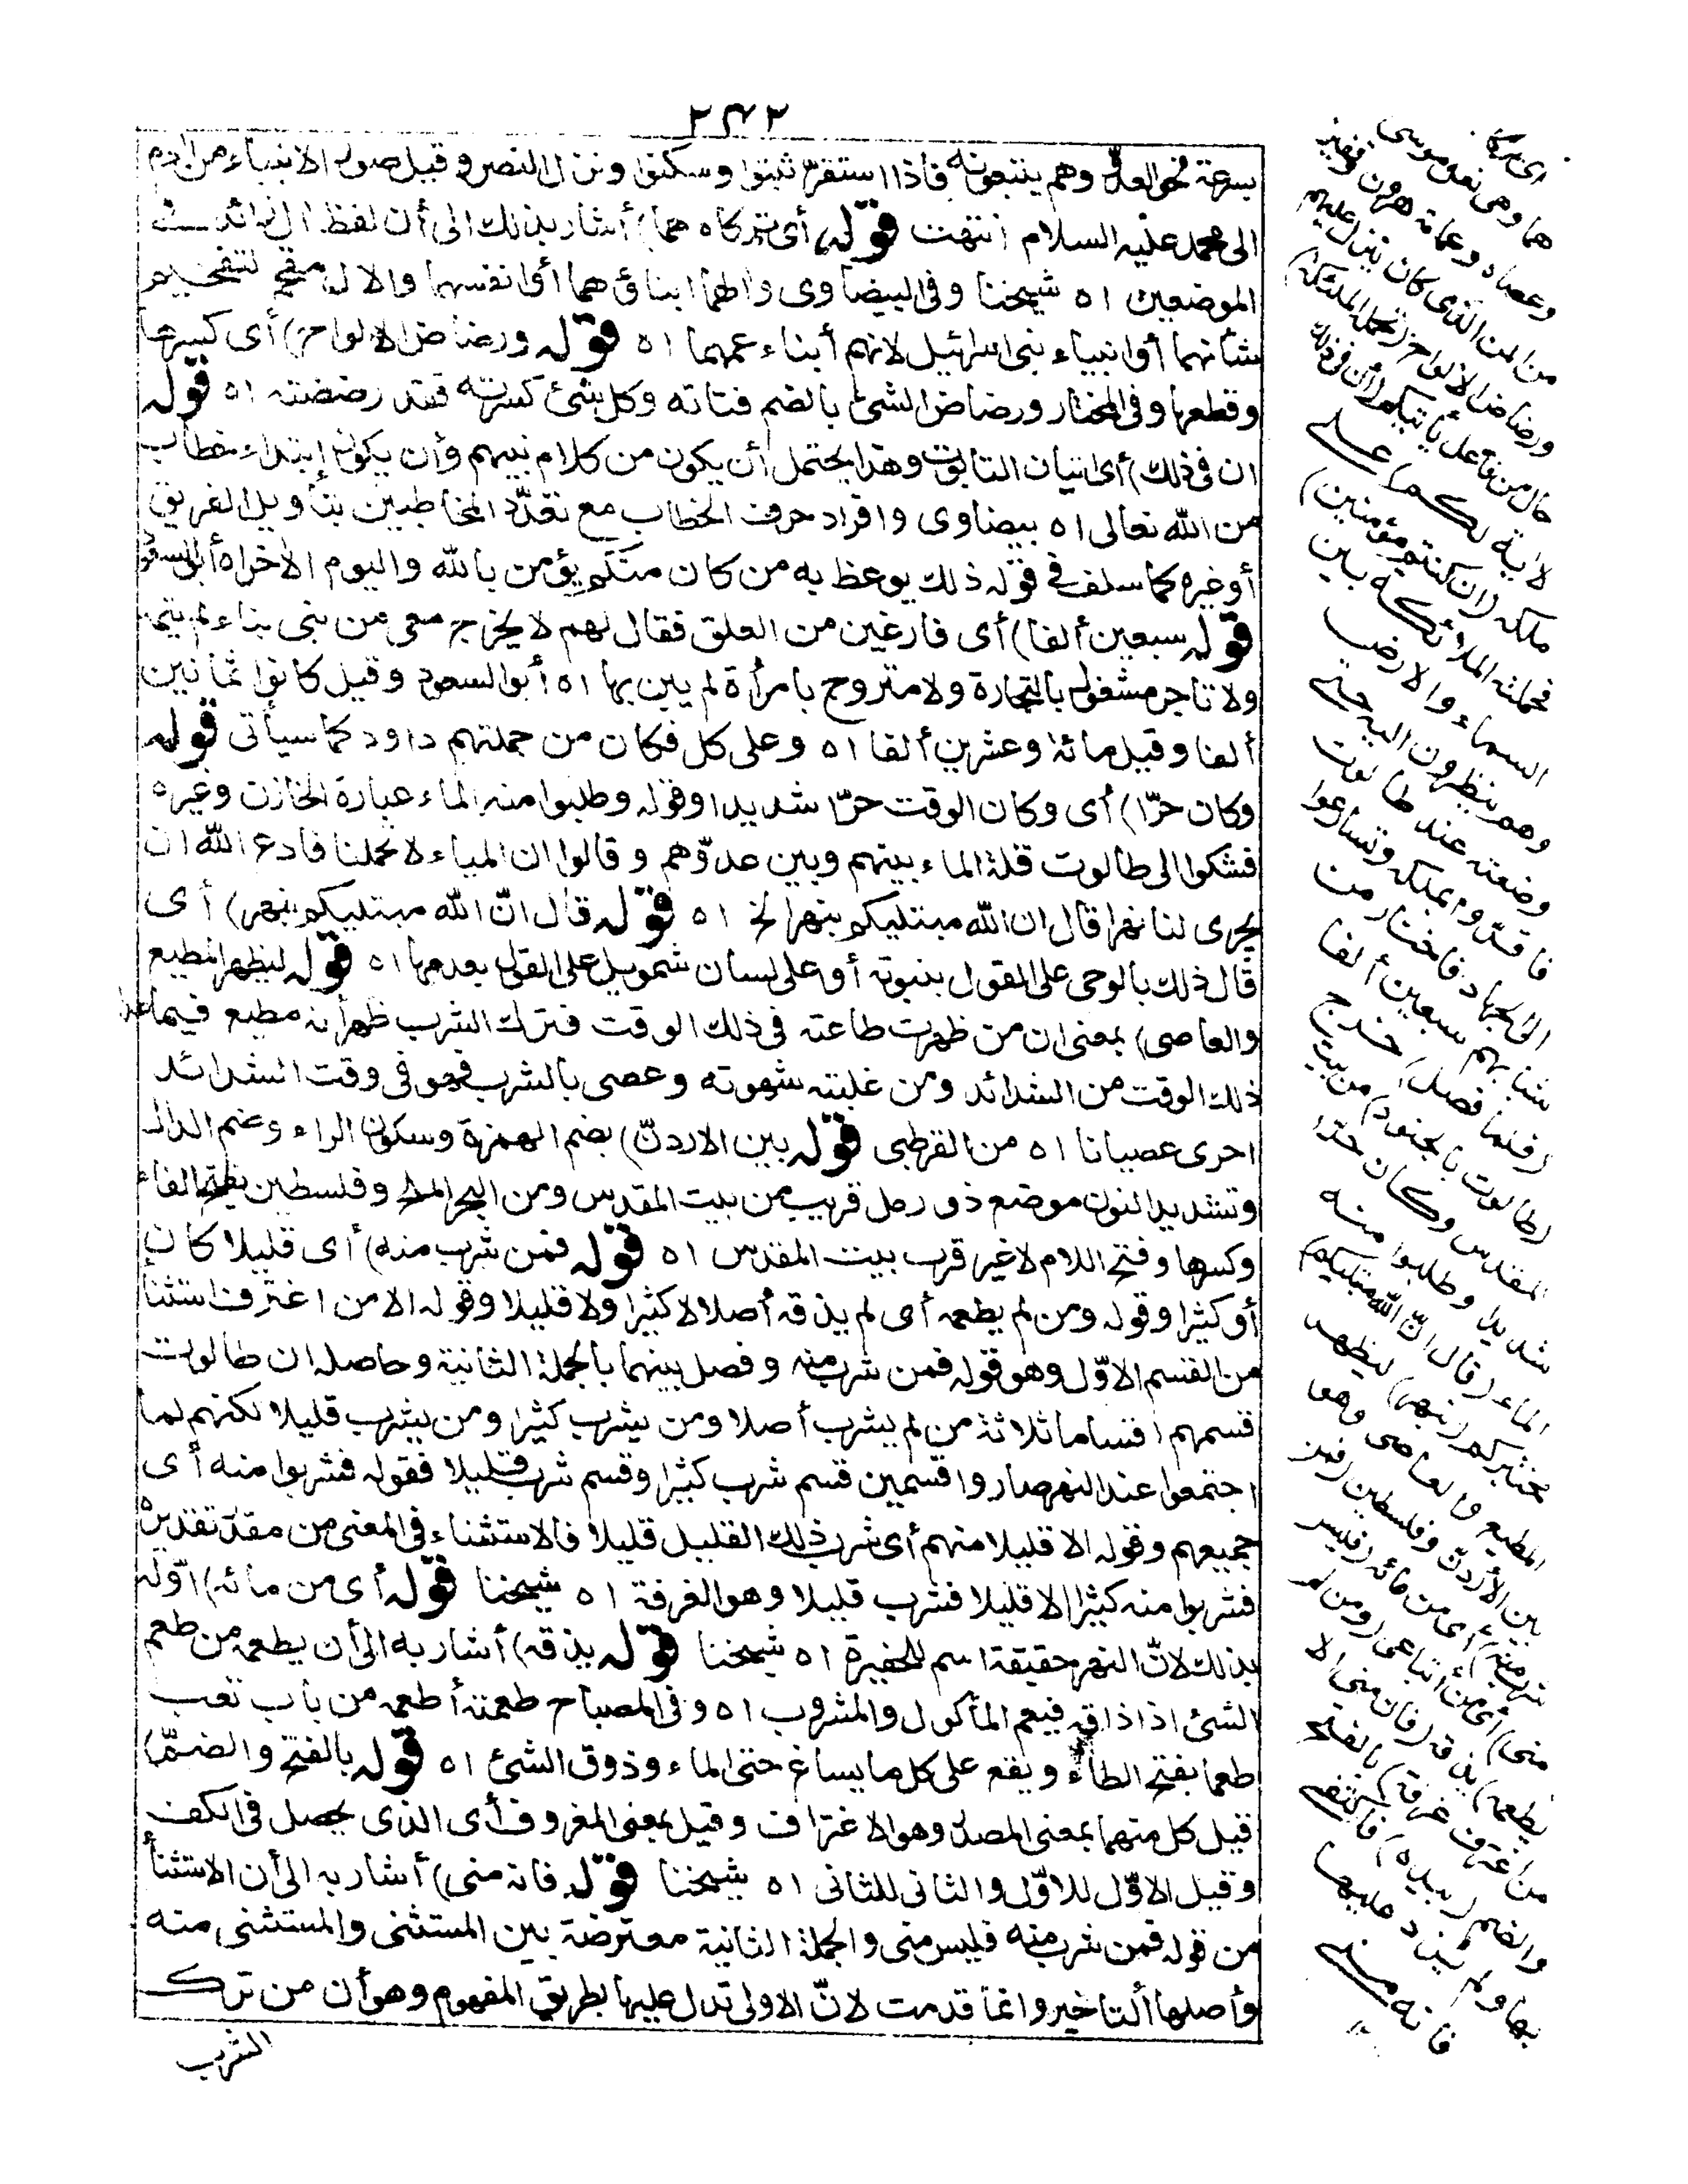 ٢٤٢
بسرعة نحو العدوّ وهم يتبعونه فاذا استقرّ ثبتوا وسكنوا ونزل النصر وقيل صور الانبياء من آدم
الى محمد عليه السلام انتهت قوله أى تركاه هما) أشار بذلك الى أن لفظ آل زائد فى
الموضعين اه شيخنا وفى البيضاوى وآلهما ابناؤهما أو انفسهما والآل مقحم لتفخيم
شأنهما أو انبياء بنى اسرائيل لانهم أبناء عمهما اه قوله ورضاض الالواح) أى كسرها
وقطعها وفى المختار ورضاض الشئ بالضم فتاته وكل شئ كسرته فقد رضضته اه قوله
ان فى ذلك) أى اتيان التابوت وهذا يحتمل أن يكون من كلام نبيهم وأن يكون ابتداء خطاب
من الله تعالى اه بيضاوى وافراد حرف الخطاب مع تعدّد المخاطبين بتأويل الفريق
أوغيره كما سلف فى قوله ذلك يوعظ به من كان منكم يؤمن بالله واليوم الآخر اه أبوالسعود
قوله سبعين ألفا) أى فارغين من العلق فقال لهم لا يخرج معى من بنى بناء لم يتمه
ولا تاجر مشغول بالتجارة ولا متزوج بامرأة لم يبن بها اه أبوالسعود وقيل كانوا ثمانين
ألفا وقيل مائة وعشرين ألفا اه وعلى كل فكان من جملتهم داود كما سيأتى قوله
وكان حرّا) أى وكان الوقت حرّا شديدا وقوله وطلبوا منه الماء عبارة الخازن وغيره
فشكوا الى طالوت قلة الماء بينهم وبين عدوّهم وقالوا ان المياه لا تحملنا فادع الله ان
يجرى لنا نهرا قال ان الله مبتليكم بنهر الخ اه قوله قال انّ الله مبتليكم بنهر) أى
قال ذلك بالوحى على القول بنبوته أو على لسان شمويل على القول بعدمها اه قوله ليظهر المطيع
والعاصى) بمعنى ان من ظهرت طاعته فى ذلك الوقت فترك الشرب ظهر أنه مطيع فيما عدا
ذلك الوقت من الشدائد ومن غلبته شهوته وعصى بالشرب فهو فى وقت الشدائد
احرى عصيانا اه من القرطبى قوله بين الاردنّ) بضم الهمزة وسكون الراء وضم الدال
وتشديد النون موضع ذو رمل قريب من بيت المقدس ومن البحر المالح وفلسطين بفتح الفاء
وكسرها وفتح اللام لاغير قرب بيت المقدس اه قوله فمن شرب منه) أى قليلا كان
أو كثيرا وقوله ومن لم يطعمه أى لم يذقه أصلا لا كثيرا ولا قليلا وقوله الا من اغترف استثنأ
من القسم الاوّل وهو قوله فمن شرب منه وفصل بينهما بالجملة الثانية وحاصله ان طالوت
قسمهم اقساما ثلاثة من لم يشرب أصلا ومن يشرب كثيرا ومن يشرب قليلا لكنهم لما
اجتمعوا عند النهر صاروا قسمين قسم شرب كثيرا وقسم شرب قليلا فقوله فشربوا منه أى
جميعهم وقوله الا قليلا منهم أى شرب ذلك القليل قليلا فالاستثناء فى المعنى من مقدّر تقديره
فشربوا منه كثيرا الا قليلا فشرب قليلا وهو الغرفة اه شيخنا قوله أى من مائه) اوّله
بذلك لانّ النهر حقيقة اسم للحفيرة اه شيخنا قوله يذقه) أشار به الى أن يطعمه من طعم
الشئ اذا ذاقه فيعم المأكول والمشروب اه وفى المصباح طعمته أطعمه من باب تعب
طعما بفتح الطاء ويقع على كل ما يساغ حتى الماء وذوق الشئ اه قوله بالفتح والضمّ)
قيل كل منهما بمعنى المصدر وهو الاغتراف وقيل بمعنى المغروف أى الذى يحصل فى الكف
وقيل الاوّل للاوّل والثانى للثانى اه شيخنا قوله فانه منى) أشار به الى أن الاستثنأ
من قوله فمن شرب منه فليس منى والجملة الثانية معترضة بين المستثنى والمستثنى منه
وأصلها التاخير وانما قدمت لانّ الاولى تدل عليها بطريق المفهوم وهو أن من ترك
الشرب
أى تركا
هما وهى نعلا موسى
وعصاه وعمامة هرون وقفيز
من المن الذى كان ينزل عليهم
ورضاض الالواح (تحمله الملئكة)
حال من فاعل يأتيكم (ان فى ذلك
لآية لكم) على
ملكه (ان كنتم مؤمنين)
فحملته الملائكة بين
السماء والارض
وهم ينظرون اليه حتى
وضعته عند طالوت
فاقرّوا بملكه وتسارعوا
الى الجهاد فاختار من
شبابهم سبعين ألفا
(فلما فصل) خرج
(طالوت بالجنود) من بيت
المقدس وكان حرّا
شديدا وطلبوا منه
الماء (قال انّ الله مبتليكم)
مختبركم (بنهر) ليظهر
المطيع والعاصى وهو
بين الأردنّ وفلسطين (فمن
شرب منه) أى من مائه (فليس
منى) أى من أتباعى (ومن لم
يطعمه) يذقه (فانه منى الا
من اغترف غرفة) بالفتح
والضم (بيده) فاكتفى
بها ولم يزد عليها
فانه منى